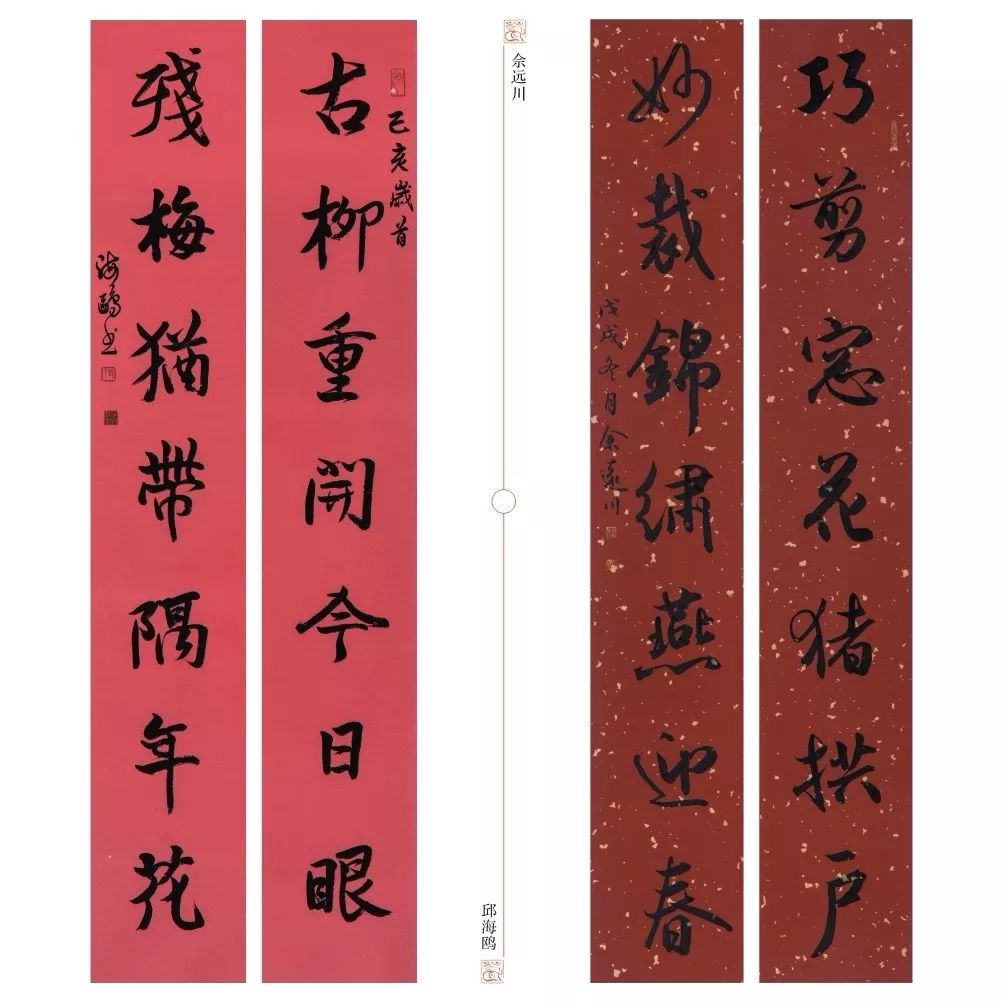 巧剪窓花猪拱戶
妙裁錦繡燕迎春
戊戌冬月佘遠川
佘远川
邱海鸥
己亥歲首
古柳重開今日眼
殘梅猶帶隔年花
海鷗书